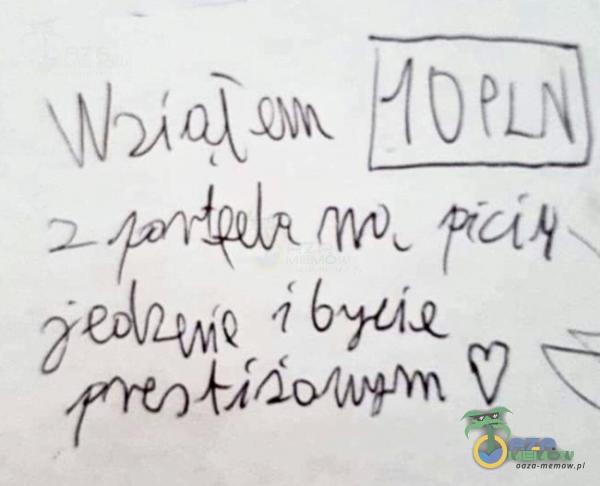 Wziąłem 10 PLN
z portfela na picie
jedzenie i bycie
prestiżowym ♡
OAZA
MEMÓW
oaza-memow.pl